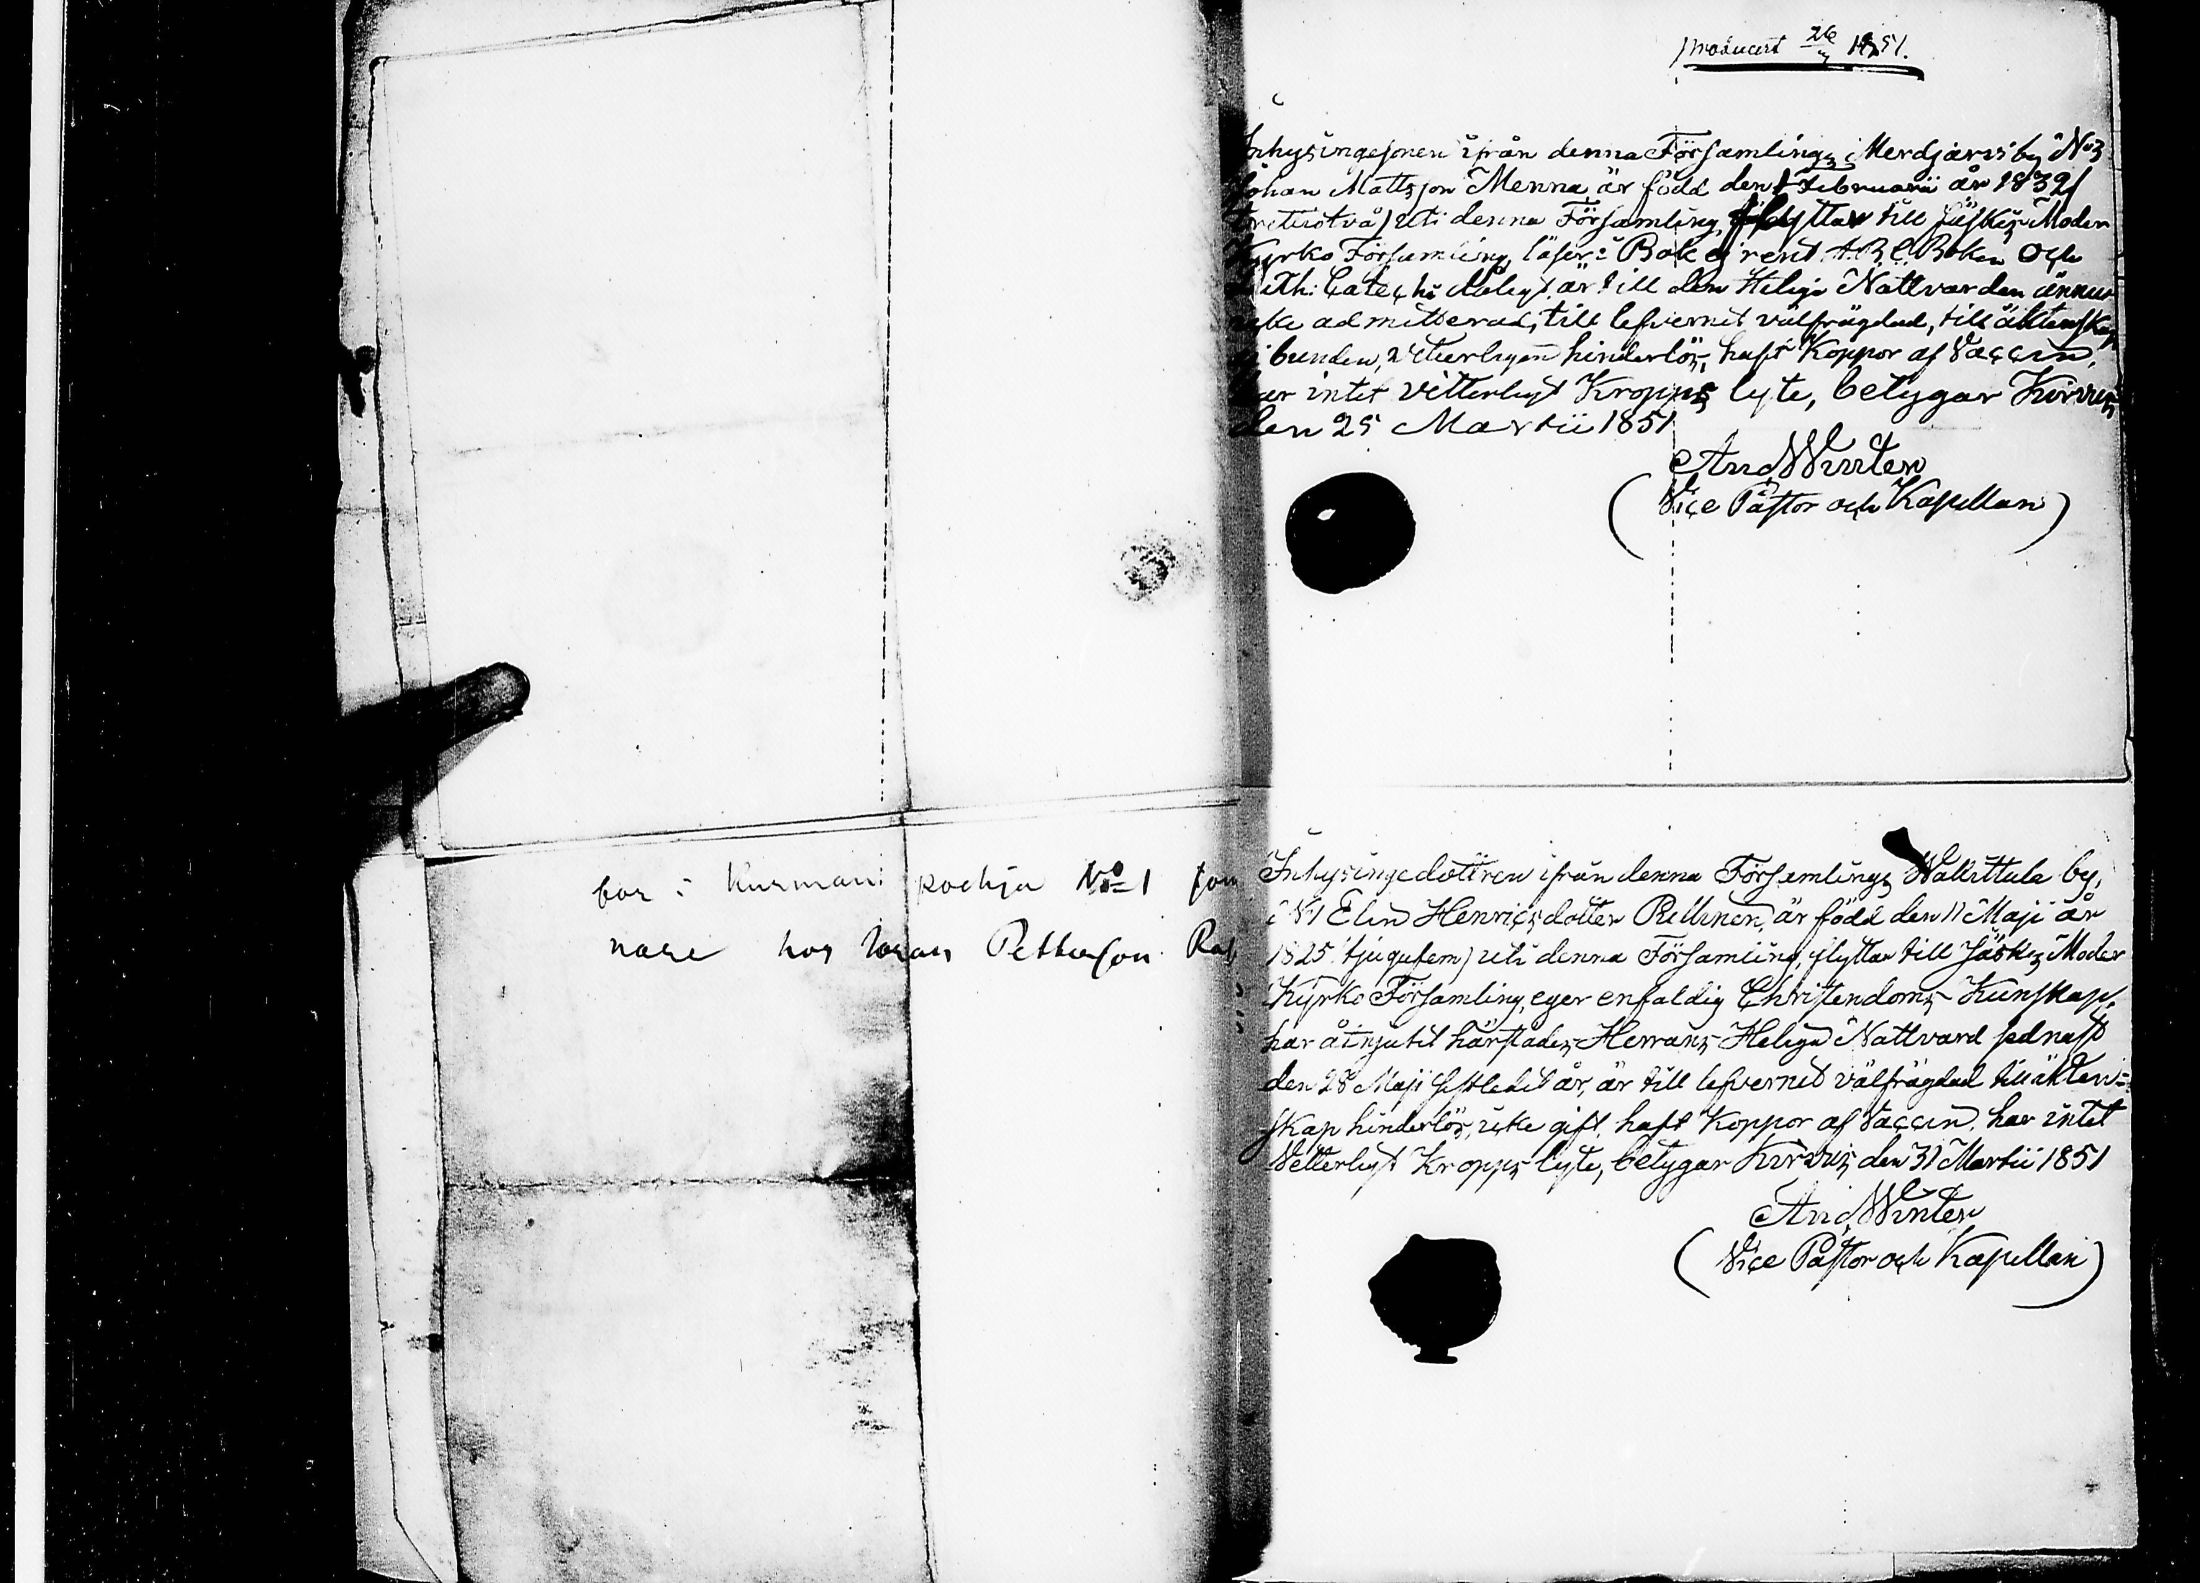 bor i Kurman rockja No 1 som
nare hos Johan Petterson
Producert 26/ 1851.
Inhysingesonen ifrån denna Församlings Merdjärvis by No 3
Johan Mattsson Menna är född den 1 Februarii år 1832/
trettiotvå/ uti denna Församling, flyttar till Jäskis Moder
Kyrko Församling, läser i Bok ej rent A.B.C. Boken och
Luth: Cateches är till den Heliga Nattvarden ännu
icke admitterad, till lefvernet välfrägdad, till äktenskap
ej bunden, hinderlös, haft Koppor af Vaccin,
har intet vitterligt Kropps lyte, betygar Kirvus
den 25 Martii 1851
And Winter
(Vice Pastor och Kapellan)
Inhysingedottren ifrån denna Församlings Wallittula by,
i N 1 Elin Henricsdotter Pellinen, är född den 11 Maji år
1825 tjugufem) uti denna Församling, flyttar till Jäskis Moder
Kyrko Församling, eger enfaldig Christendoms Kunskap,
har åtnjutit härstades Herrans Heliga Nattvard sednast
den 28 Maji sistledet år, är till lefvernet välfrägdad till äkten=
skap hinderlös, icke gift, haft Koppor af Vaccin, har intet
Vetterligt Kropps lyte, betygar Kirvus den 31 Martii 1851
And Winter
(Vice Pastor och Kapellan)